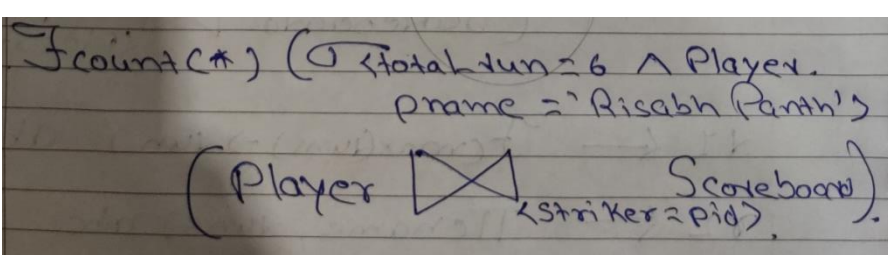 ℱcount(*) (σ <total_run=6 ∧ Player.
pname = 'Risabh Panth'>
(Player ⋈ <striker=pid> Scoreboard).